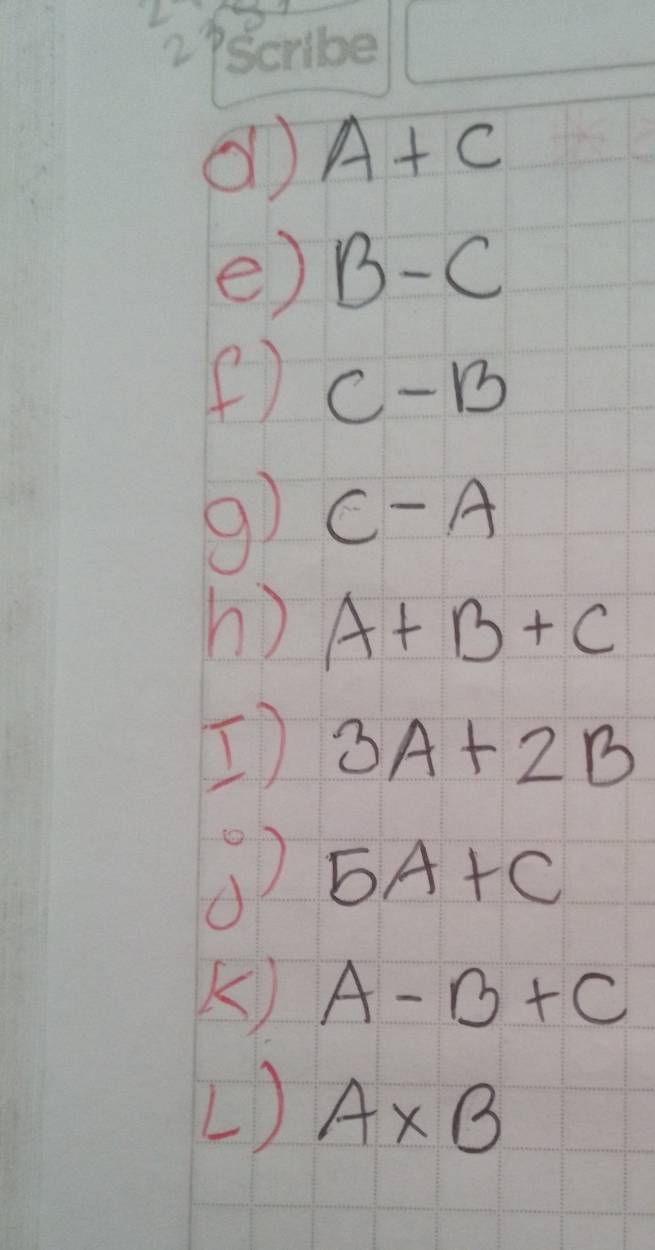 Scribe
d) A + C
e) B - C
f) C - B
g) C - A
h) A + B + C
I) 3A + 2B
j) 5A + C
K) A - B + C
L) A x B